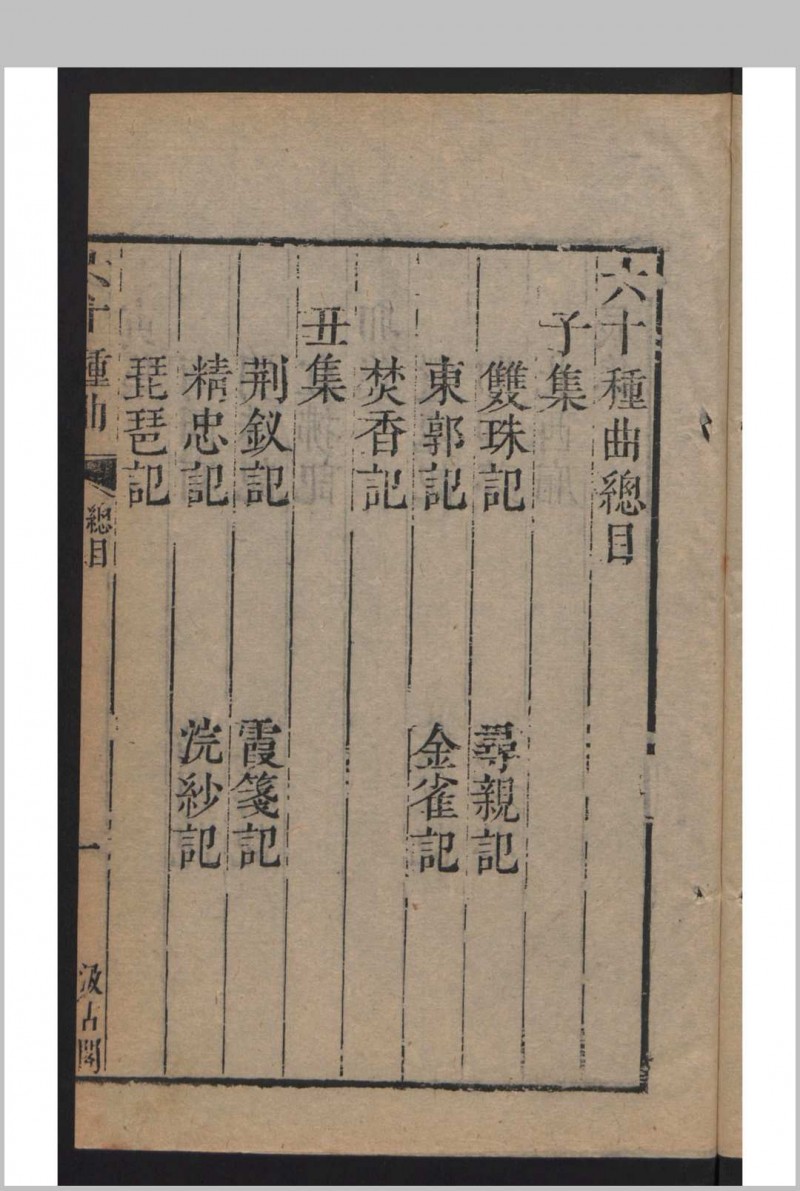 六十種曲總目
子集
雙珠記 尋親記
東郭記 金雀記
焚香記
丑集
荆釵記 霞箋記
精忠記 浣紗記
琵琶記
六十種曲 總目 一 汲古閣